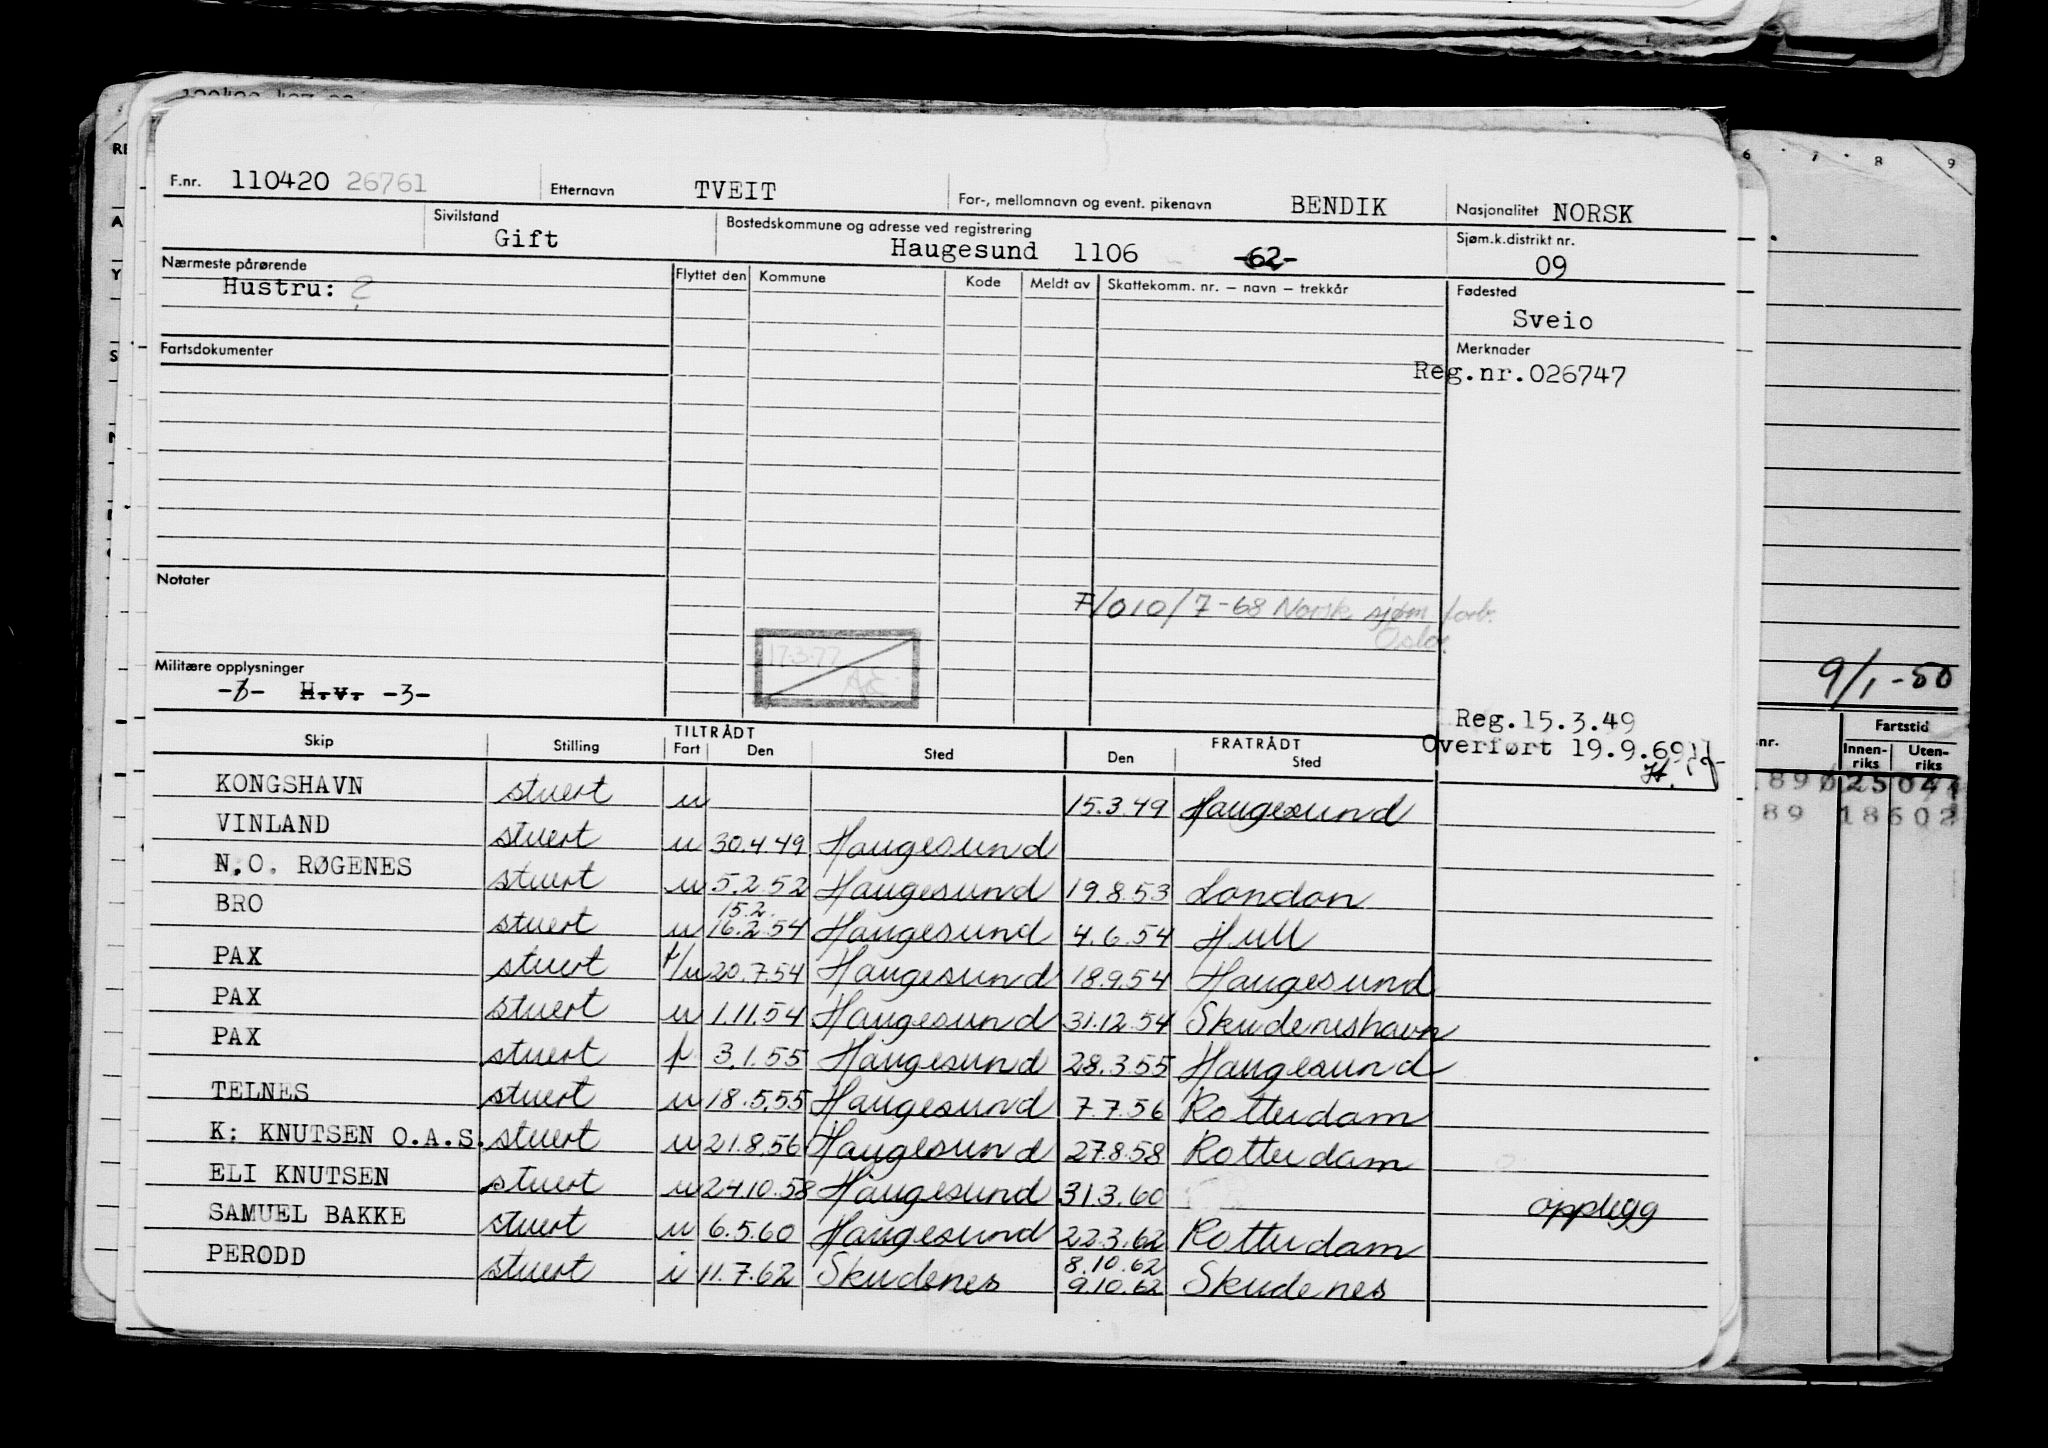 F.nr. 110420 26761 Etternavn TVEIT For-, mellomnavn og event. pikenavn BENDIK Nasjonalitet NORSK
Sivilstand Gift Bostedskommune og adresse ved registrering Haugesund 1106 -62- Sjøm.k.distrikt nr. 09
Nærmeste pårørende Flyttet den Kommune Kode Meldt av Skattekomm. nr. – navn – trekkår Fødested
Hustru: ? Sveio
Fartsdokumenter Merknader
Reg.nr.026747
Notater
7/010/7-68 Norsk sjøm. forb.
Oslo.
17.3.77
Militære opplysninger
H.v. -3-
Reg.15.3.49
Overført 19.9.69
Skip Stilling TILTRÅDT Fart Den Sted FRATRÅDT Den Sted
KONGSHAVN stuert u 15.3.49 Haugesund
VINLAND stuert u 30.4.49 Haugesund
N.O. RØGENES stuert u 5.2.52 Haugesund 19.8.53 London
15.2.
BRO stuert u 16.2.54 Haugesund 4.6.54 Hull
PAX stuert f/u 20.7.54 Haugesund 18.9.54 Haugesund
PAX stuert u 1.11.54 Haugesund 31.12.54 Skudeneshavn
PAX stuert f 3.1.55 Haugesund 28.3.55 Haugesund
TELNES stuert u 18.5.55 Haugesund 7.7.56 Rotterdam
K: KNUTSEN O.A.S. stuert u 21.8.56 Haugesund 27.8.58 Rotterdam
ELI KNUTSEN stuert u 24.10.58 Haugesund 31.3.60 opplegg
SAMUEL BAKKE stuert u 6.5.60 Haugesund 22.3.62 Rotterdam
8.10.62
PERODD stuert i 11.7.62 Skudenes 9.10.62 Skudenes
6 7 8 9
9/1-50
nr. Fartstid
Innen-riks Uten-riks